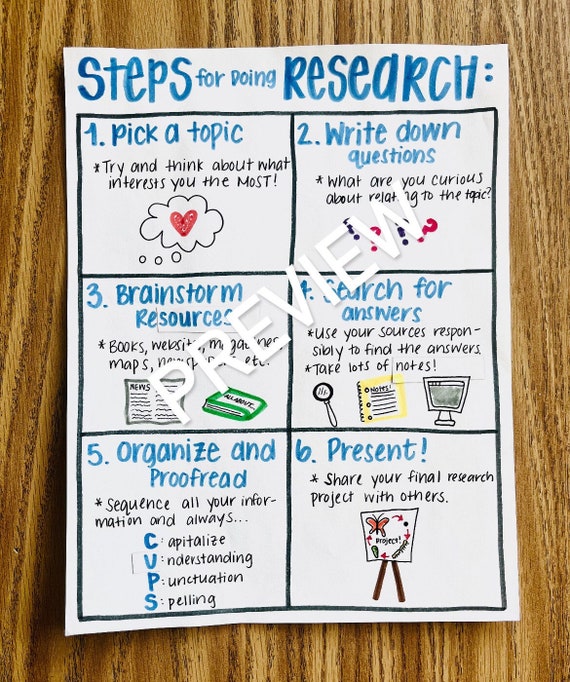 STEPS for Doing RESEARCH:
1. Pick a topic
* Try and think about what
interests you the MOST!
2. Write down
questions
* What are you curious
about relating to the topic?
3. Brainstorm
Resources
* Books, website, magazines
maps, etc.
NEWS
ALL ABOUT...
4. Search for
answers
* Use your sources respon-
sibly to find the answers.
* Take lots of notes!
NOTES!
5. Organize and
Proofread
* Sequence all your infor-
mation and always...
C: apitalize
U: nderstanding
P: unctuation
S: pelling
6. Present!
* Share your final research
project with others.
Project!
PREVIEW